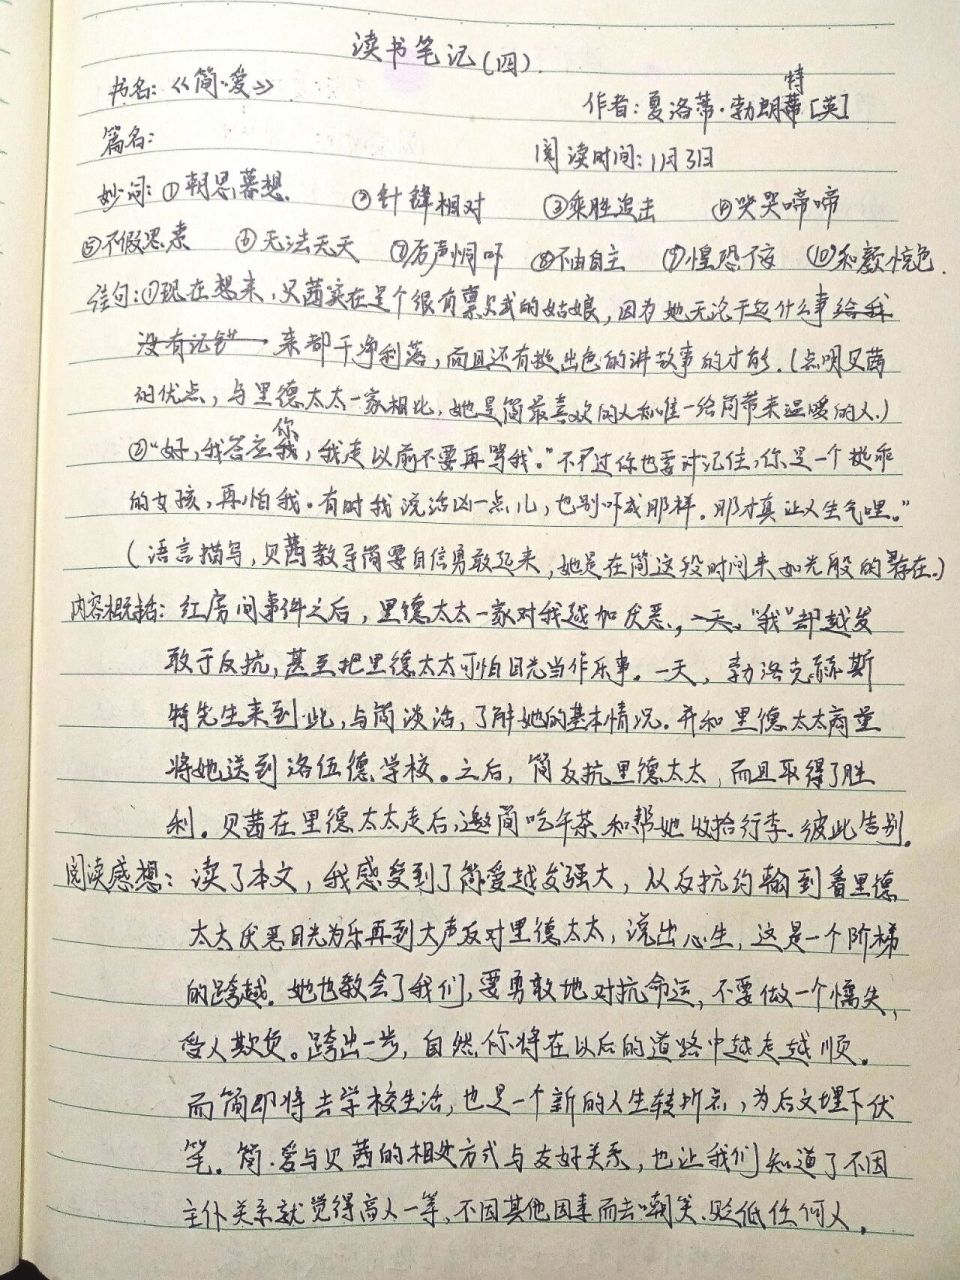 读书笔记(四).
书名:《简·爱》
作者:夏洛蒂·勃朗特[英]
篇名:
阅读时间:1月3日
妙词:①朝思暮想. ②针锋相对 ③乘胜追击 ④哭哭啼啼
⑤不假思索 ⑥无法无天 ⑦厉声恫吓 ⑧不由自主 ⑨惶恐不安 ⑩和颜悦色.
佳句:①现在想来,贝茜实在是个很有禀赋的姑娘,因为她无论干起什么事给我
没有记错 来都干净利落,而且还有挺出色的讲故事的才能.(点明贝茜
的优点,与里德太太一家相比,她是简最喜欢的人和唯一给简带来温暖的人.)
②“好,我答应你,我走以前不要再骂我.”不过你也要对记住,你是一个挺乖
的女孩,再怕我.有时我说话凶一点儿,也别吓成那样.那才真让人生气哩.”
(语言描写,贝茜教导简要自信勇敢起来,她是在简这段时间来如光般的存在.)
内容概括:红房间事件之后,里德太太一家对我越加厌恶.,一天,“我”却越发
敢于反抗,甚至把里德太太可怕目光当作乐事.一天,勃洛克赫斯
特先生来到此,与简谈话,了解她的基本情况.并和里德太太商量
将她送到洛伍德学校。之后,简反抗里德太太,而且取得了胜
利.贝茜在里德太太走后,邀简吃午茶和帮她收拾行李.彼此告别.
阅读感想:读了本文,我感受到了简爱越发强大,从反抗约翰到看里德
太太厌恶目光为乐再到大声反对里德太太,说出心生,这是一个阶梯
的跨越.她也教会了我们,要勇敢地对抗命运,不要做一个懦夫,
受人欺负。跨出一步,自然你将在以后的道路中越走越顺.
而简即将去学校生活,也是一个新的人生转折点,为后文埋下伏
笔.简·爱与贝茜的相处方式与友好关系,也让我们知道了不因
主仆关系就觉得高人一等,不因其他因素而去嘲笑、贬低任何人.